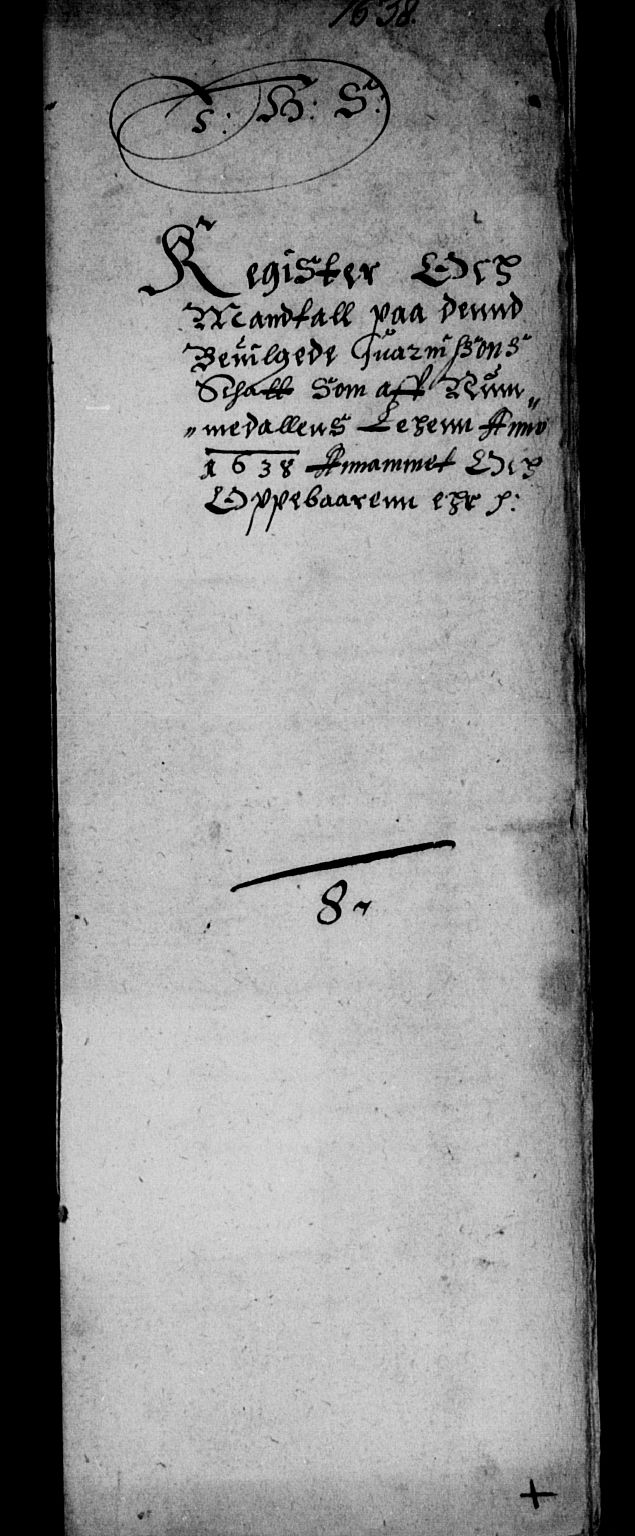 1638.
J: H: S:
Register Och
Mandtall paa dennd
Beuilgede Guarnissons
Schatt Som aff Num„
„medallens Lehenn Anno
1638 Annammet Och
Oppebaarenn ehr p:
8
+